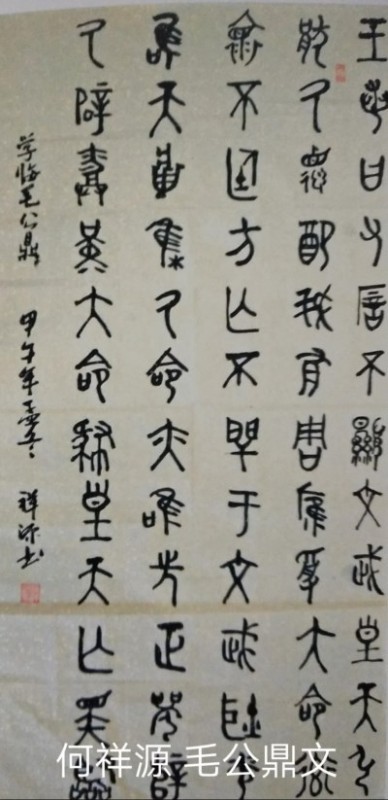 王若曰父厝不顯文武皇天引
猒氒德配我有周膺受大命率
褱不廷方亡不閈于文武耿光
唯天將集氒命亦唯先正辥
氒辟堇大命肆皇天亡斁臨
学临毛公鼎 甲午年孟冬 祥源书
何祥源 毛公鼎文